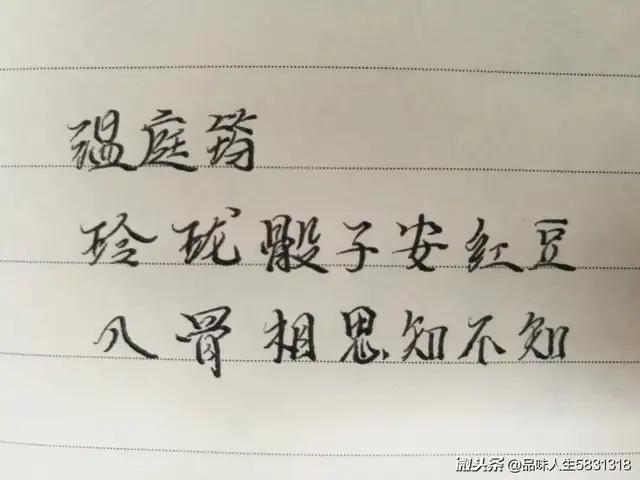 温庭筠
玲珑骰子安红豆
入骨相思知不知
微头条 @品味人生5831318